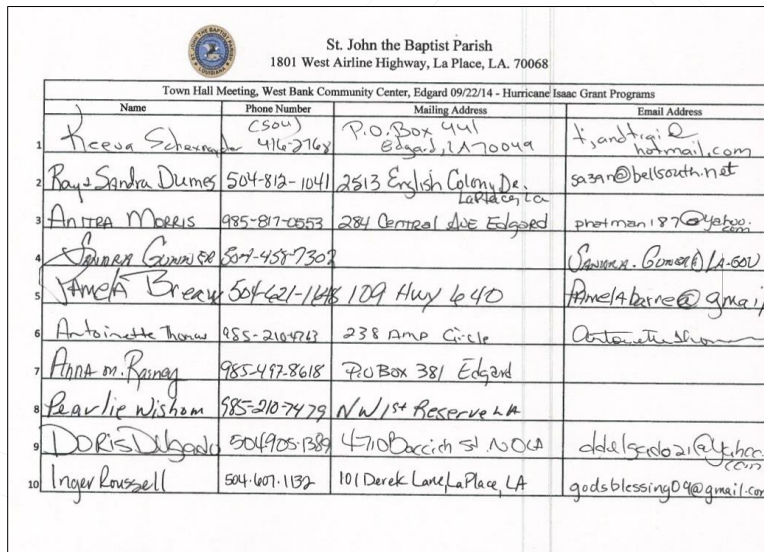 St. John the Baptist Parish
1801 West Airline Highway, La Place, LA. 70068
Town Hall Meeting, West Bank Community Center, Edgard 09/22/14 - Hurricane Isaac Grant Programs
Name Phone Number Mailing Address Email Address
1 Keeva (504) 416-2768 P.O. Box 441 Edgard, LA 70049 hotmail.com
2 Ray & Sandra Dumes 504-812-1041 2513 English Colony Dr. LaPlace, La @bellsouth.net
3 ANITRA MORRIS 985-817-0553 284 CENTRAL AVE Edgard phatman187@yahoo.com
4 SANDRA 504-458-7302
5 PAmelA 504-621-1648 109 Hwy 640 PAmelAbarre@gmail
6 Antoinette Thomas 985-210-4763 238 Amp Circle
7 AnnA m. 985-497-8618 P.O Box 381 Edgard
8 Pearlie Wishom 985-210-7479 NW 1st Reserve LA
9 DORIS Delgado 504 905-1389 4710 St. NOLA ddelgado21@yahoo.com
10 Inger Roussell 504-607-1132 101 Derek Lane, LaPlace, LA godsblessing09@gmail.com